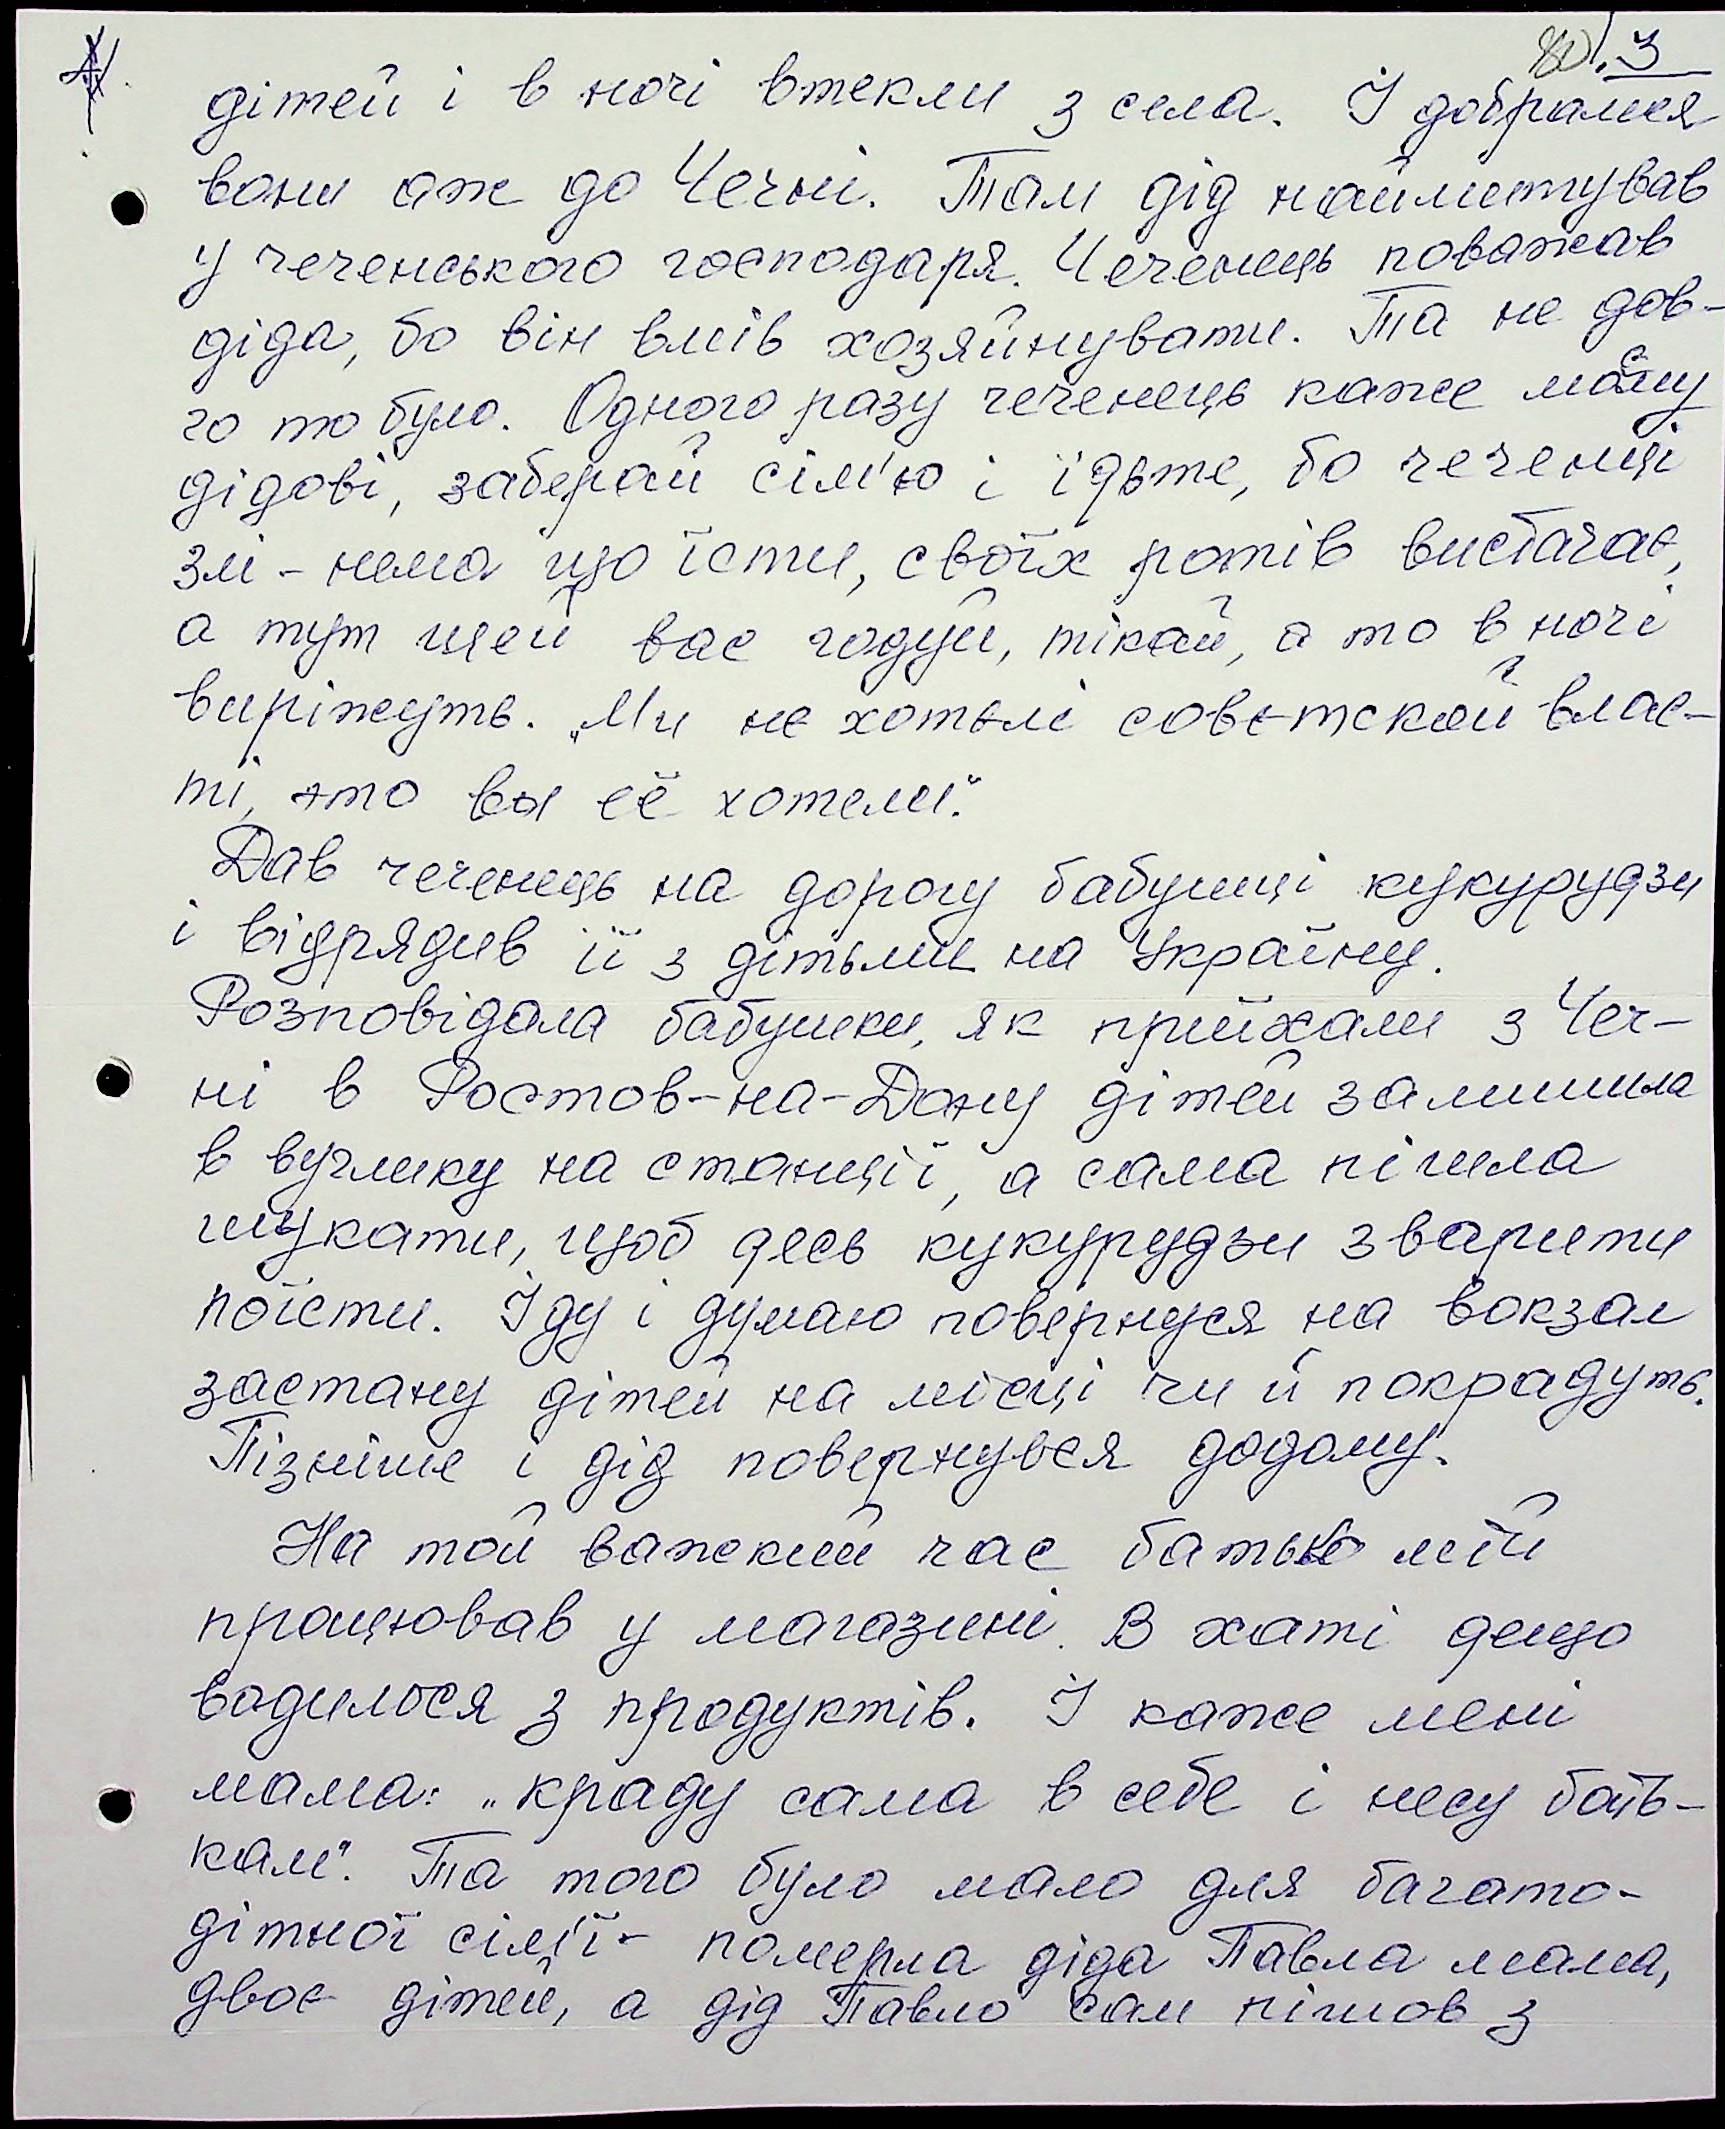 3
дітей і в ночі втекли з села. І добралися
вони аж до Чечні. Там дід наймитував
у чеченського господаря. Чеченець поважав
діда, бо він вмів хозяйнувати. Та не дов-
го то було. Одного разу чеченець каже моєму
дідові, заберай сім'ю і їдьте, бо чеченці
злі - нема що їсти, своїх ротів вистачає,
а тут щей вас годуй, тікай, а то в ночі
виріжуть. „Ми не хотелі совєтской влас-
ті, это вы её хотели".
Дав чеченець на дорогу бабушці кукурудзи
і відрядив її з дітьми на Україну.
Розповідала бабушка, як приїхали з Чеч-
ні в Ростов-на-Дону дітей залишила
в вуглику на станції, а сама пішла
шукати, щоб десь кукурудзи зварити
поїсти. Іду і думаю повернуся на вокзал
застану дітей на місці чи й покрадуть.
Пізніше і дід повернувся додому.
На той важкий час батько мій
працював у магазині. В хаті дещо
водилося з продуктів. І каже мені
мама: „краду сама в себе і несу бать-
кам". Та того було мало для багато-
дітної сім'ї - померла діда Павла мама,
двоє дітей, а дід Павло сам пішов з